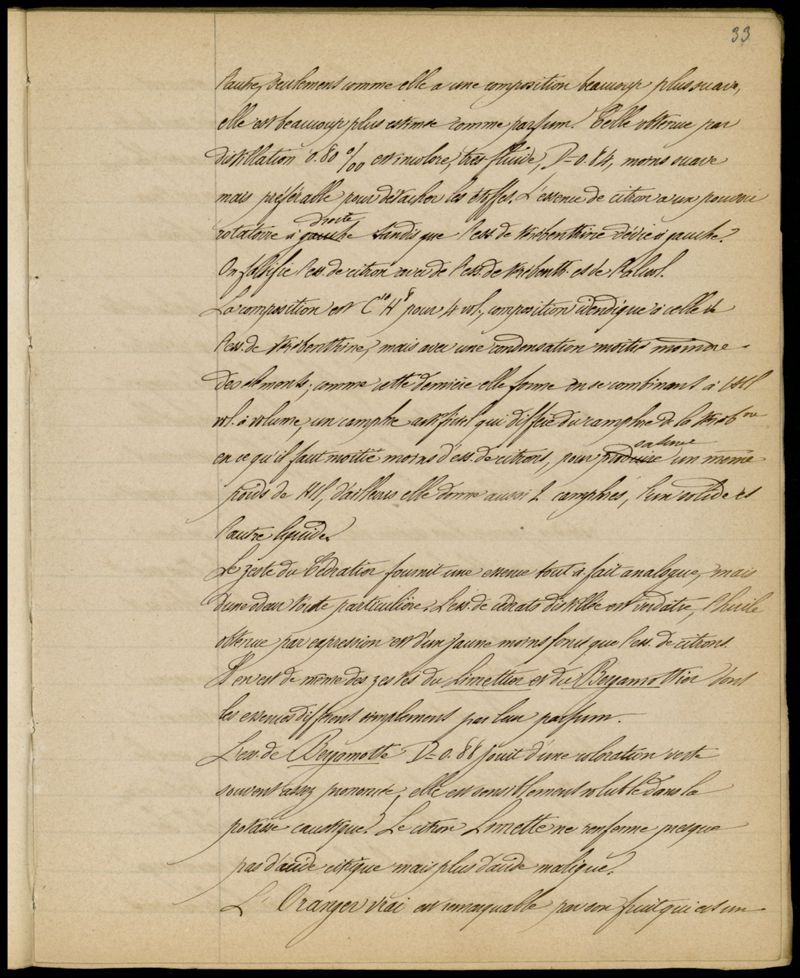 33
l'autre, seulement comme elle a une composition beaucoup plus suave,
elle est beaucoup plus estimée comme parfum. Celle obtenue par
distillation 0.80 % est incolore, très fluide, D=0.84, moins suave
mais préférable pour détacher les étoffes. L'essence de citron a un pouvoir
droite
rotatoire à gauche tandis que l'ess. de térébenthine dévie à gauche.
On falsifie l'ess. de citron avec de l'ess. de térébenth. et de l'alcool.
La composition est C10 H8 pour 4 vol., composition identique à celle de
l'ess. de térébenthine, mais avec une condensation moitié moindre
des éléments; comme cette dernière elle forme en se combinant à l'HCl
vol. à volume, un camphre artificiel qui diffère du camphre de la téréb.ne
saturer
en ce qu'il faut moitié moins d'ess. de citrons, pour produire un même
poids de HCl, d'ailleurs elle donne aussi 2 camphres, l'un solide et
l'autre liquide.
Le zeste du Cédratier fournit une essence tout à fait analogue, mais
d'une odeur toute particulière. L'ess. de cédrats distillée est verdâtre, l'huile
obtenue par expression est d'un jaune moins foncé que l'ess. de citrons.
Il en est de même des zestes du Limettier et du Bergamottier dont
les essences diffèrent simplement par leur parfum.
L'ess. de Bergamotte D=0.88 jouit d'une coloration verte
souvent assez prononcée, elle est sensiblement soluble dans la
potasse caustique. Le citron Limette ne renferme presque
pas d'acide citrique mais plus d'acide malique.
L'Oranger vrai est remarquable par son fruit qui est un